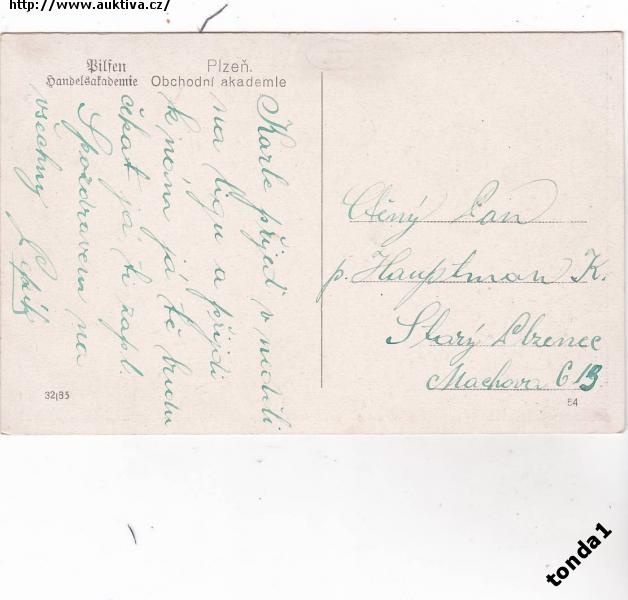 http://www.auktiva.cz/
Pilsen
Handelsakademie
Plzeň.
Obchodní akademie
Karle přijeď v neděli
na ligu a přijdi
k nám já tě budu
čekat já ti zapl.
S pozdravem na
všechny Pepík
Ctěný Pan
p. Hauptman K.
Starý Plzenec
Machova 613
32|35
54
tonda1